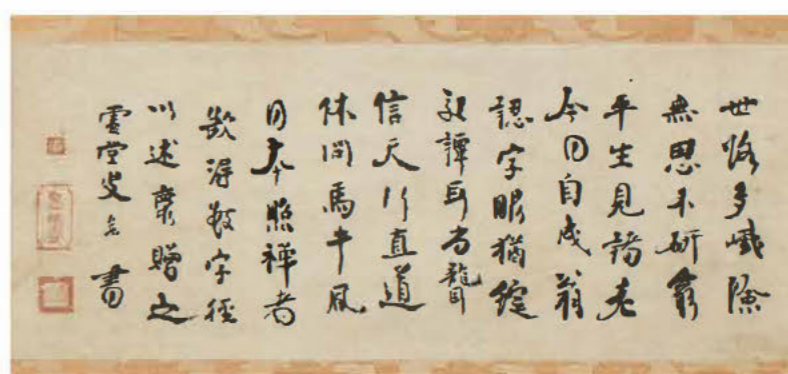 世路多巇險
無思不研窮
平生見諸老
今日自成翁
認字眼猶綻
交譚耳尚聾
信天行直道
休問馬牛風
日本照禪者
欲得數字徑
以述衷贈之
虛堂叟 書